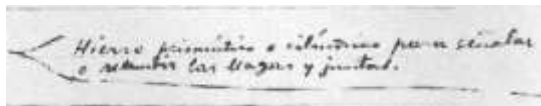 Hierro prismático o cilíndrico para señalar
o rehundir las llagas y juntas.